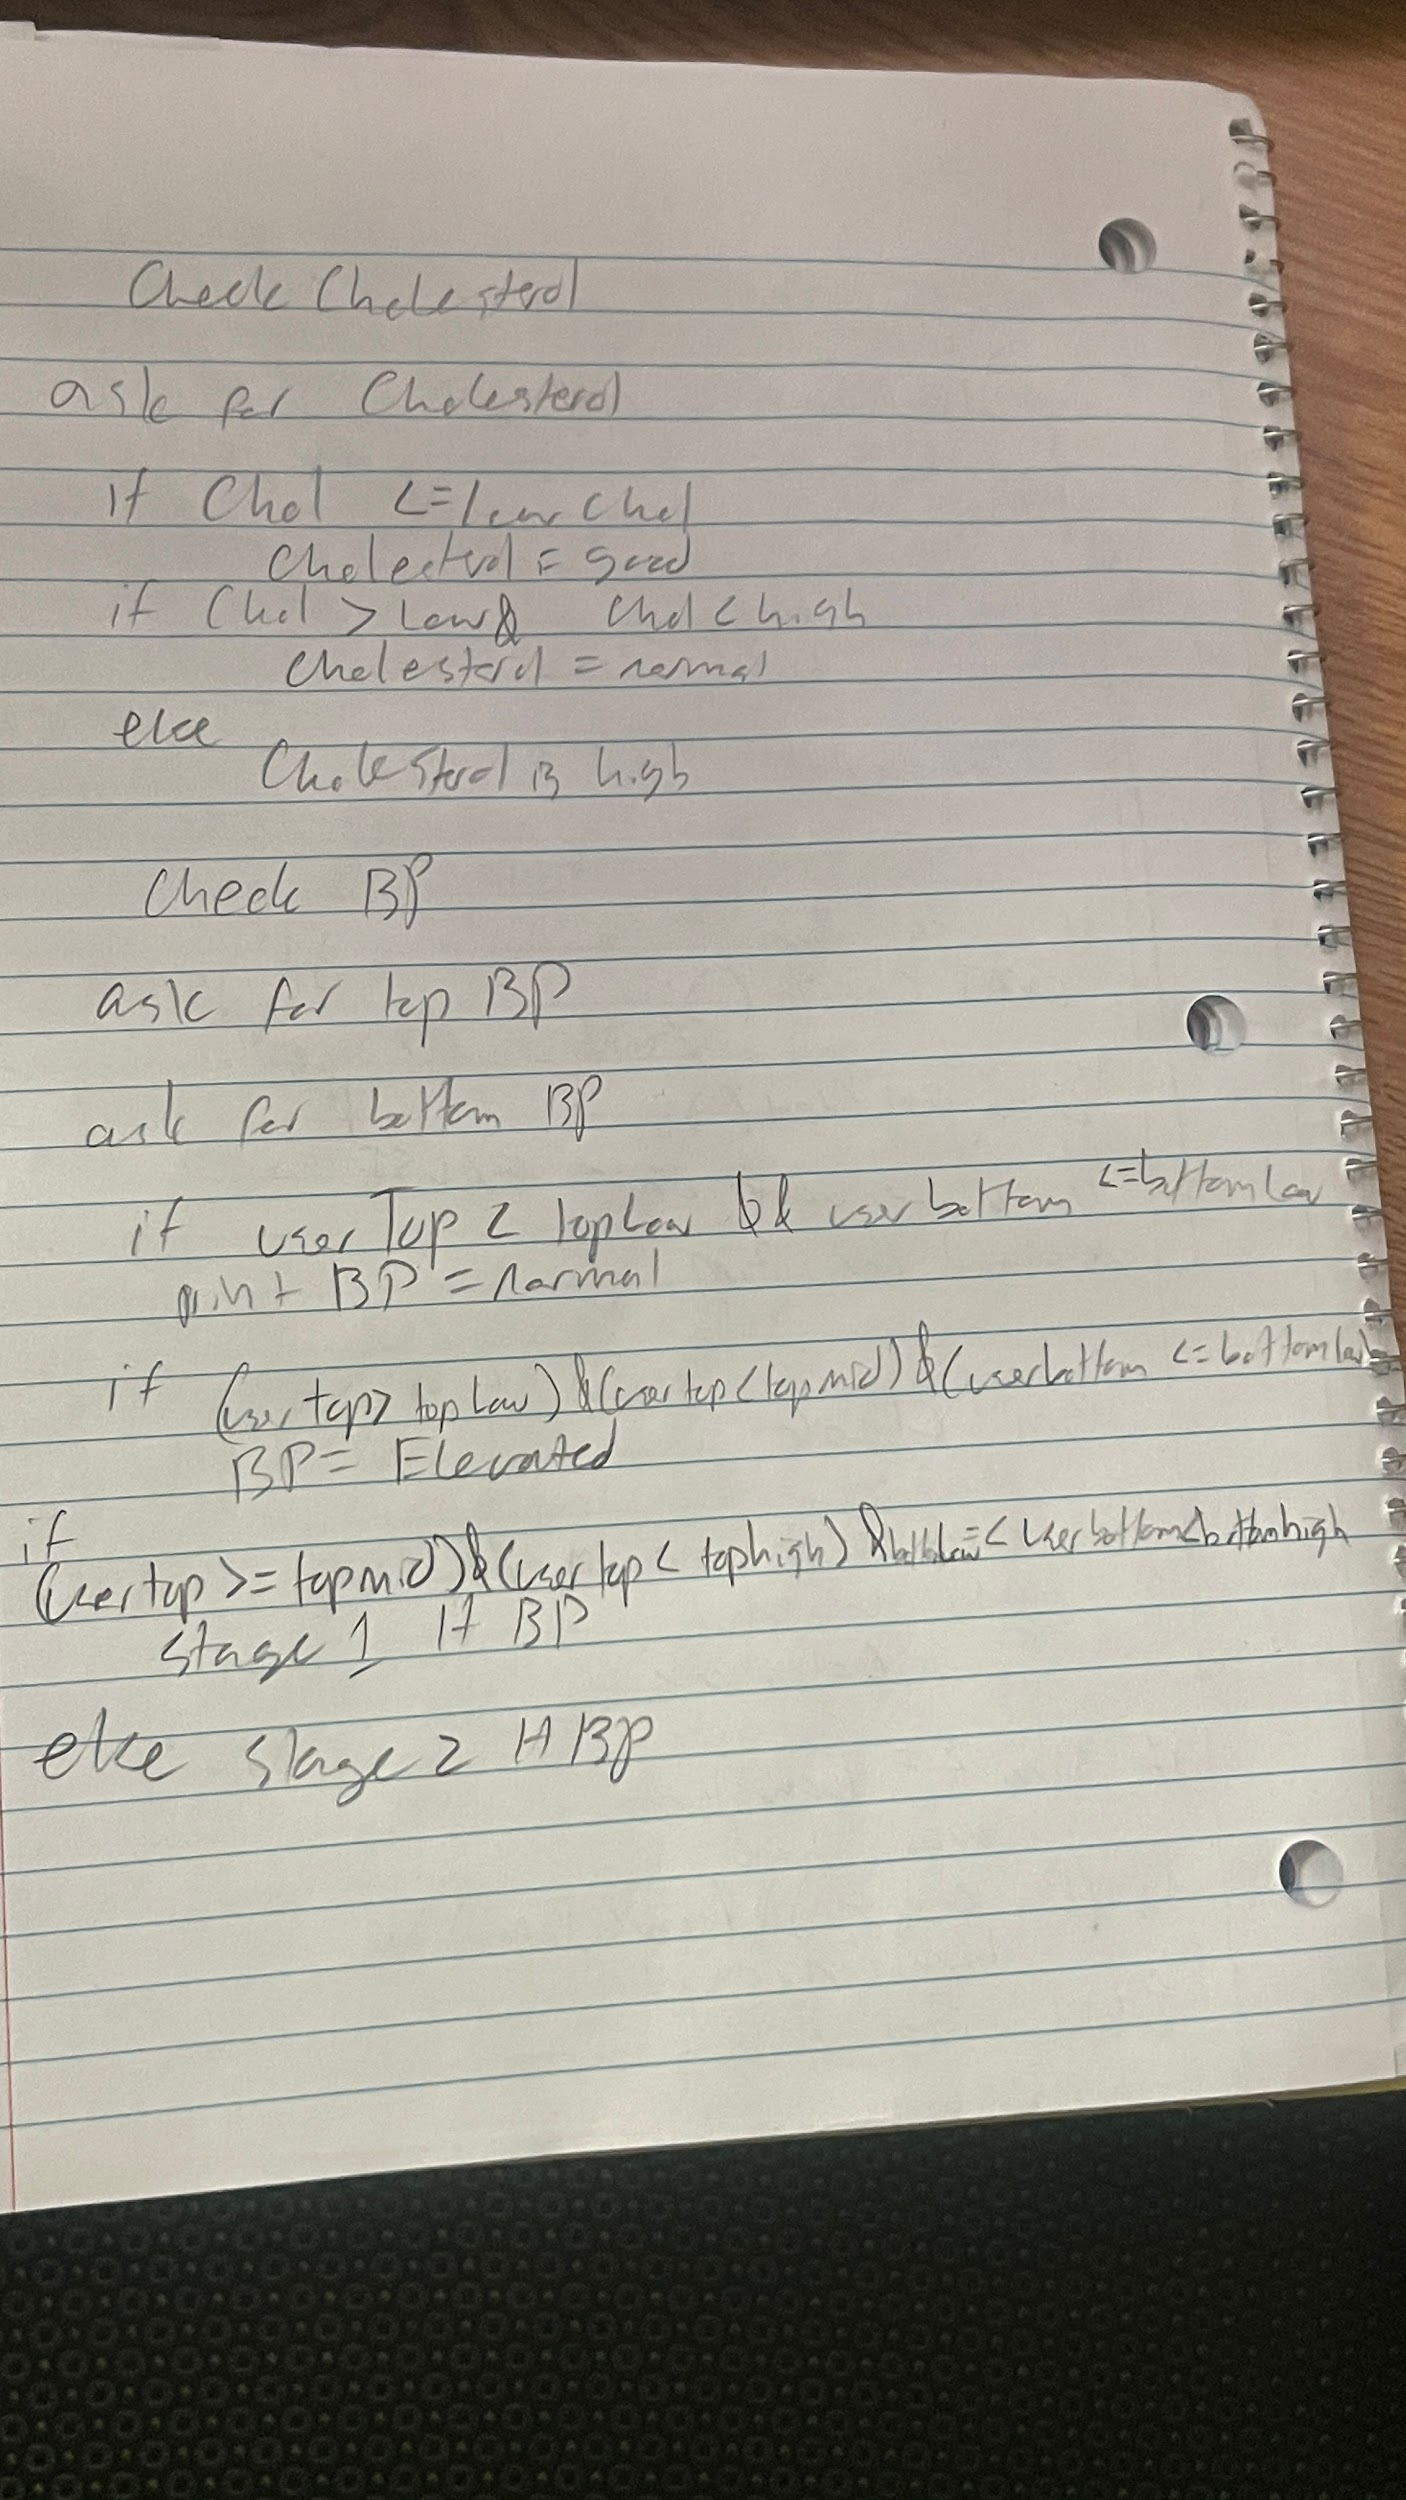 Check Cholesterol
ask for Cholesterol
if Chol <= low chol
Cholesterol = good
if Chol > low & chol < high
Cholesterol = normal
else
Cholesterol is high
Check BP
ask for top BP
ask for bottom BP
if userTop < topLow && userbottom <=bottomlow
print BP = normal
if (usertop> topLow) &(usertop<topmid) &(userbottom <=bottomlow)
BP = Elevated
if
(usertop >= topmid) &(usertop < tophigh) & =< userbottom<bottomhigh
stage 1 H BP
else stage 2 H BP